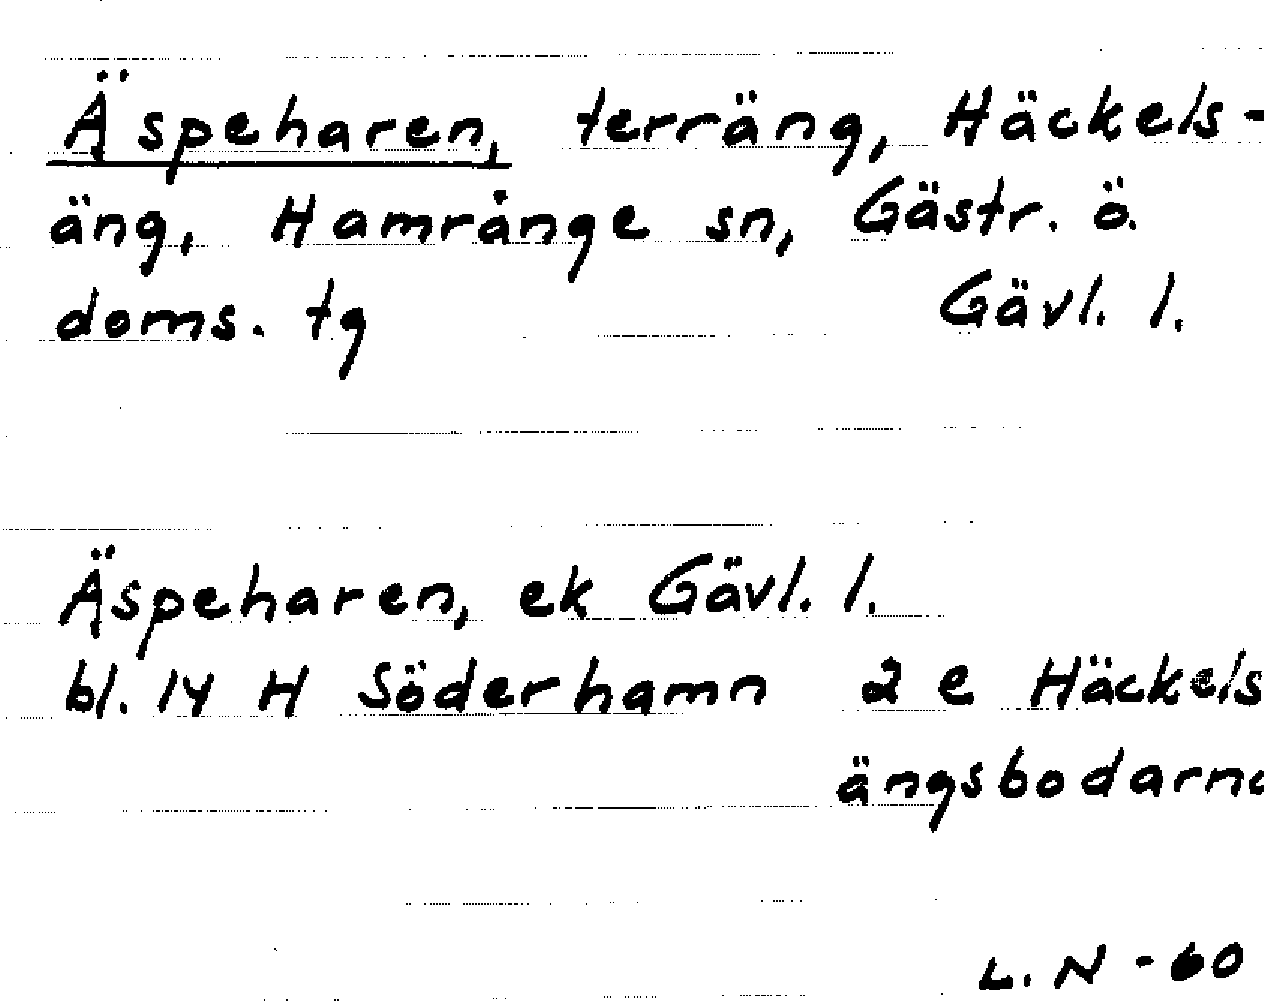 Äspeharen, terräng, Häckels-
äng, Hamrånge sn, Gästr. ö.
doms. tg Gävl. l.
Äspeharen, ek Gävl. l.
bl. 14 H Söderhamn 2 e Häckels
ängsbodarna
L. N - 60